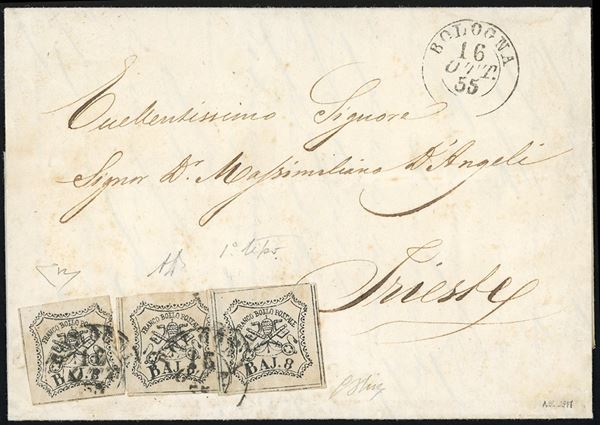 BOLOGNA
16
OTT.
55
Eccellentissimo Signore
Signor Dr. Massimiliano D'Angeli
Trieste
1° tipo.
FRANCO BOLLO POSTALE
BAJ. 8
FRANCO BOLLO POSTALE
BAJ. 8
FRANCO BOLLO POSTALE
BAJ. 8